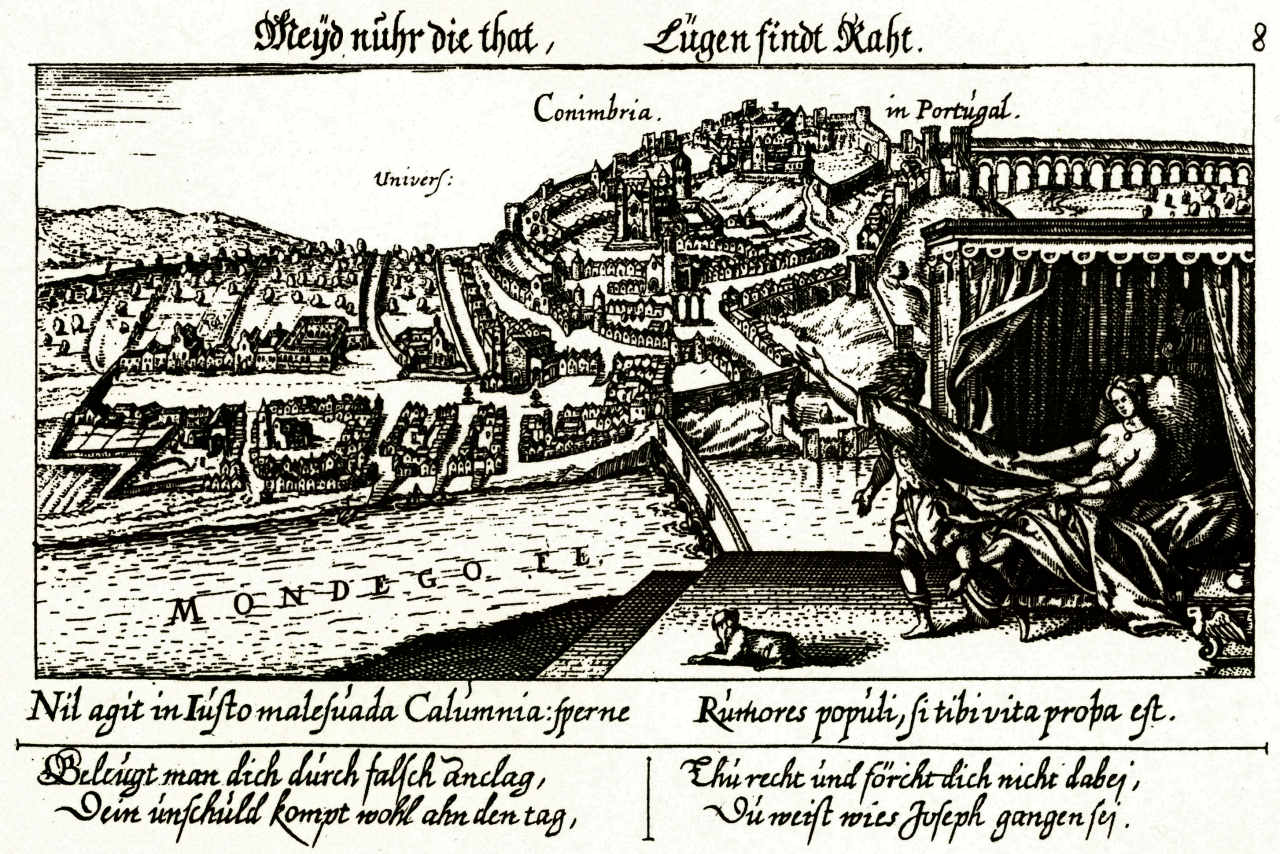 Meÿd nuhr die that, Lügen findt Raht. 8
Conimbria. in Portugal.
Univers:
MONDEGO FL.
Nil agit in Iusto malesuada Calumnia: sperne Rumores populi, si tibi vita proba est.
Beleugt man dich durch falsch anclag,
Dein unschuld kompt wohl ahn den tag,
Thu recht und förcht dich nicht dabei,
Du weist wies Joseph gangen sei.